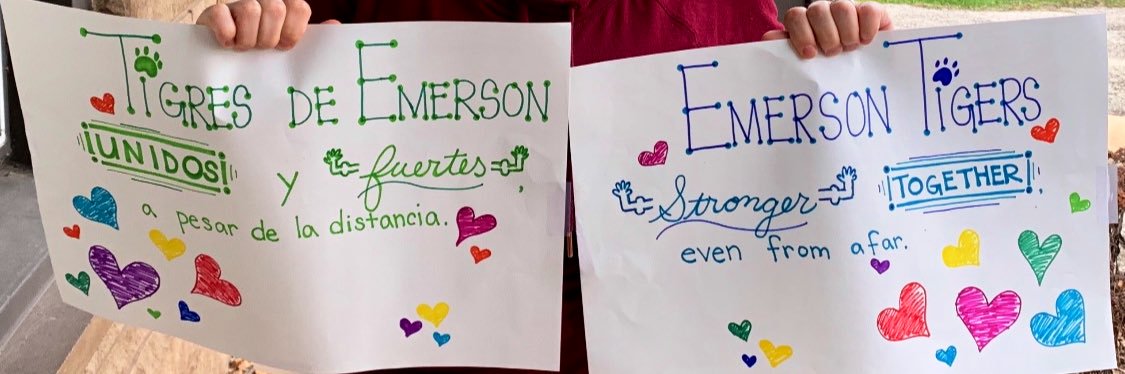 TIGRES DE EMERSON
¡UNIDOS! y fuertes,
a pesar de la distancia.
EMERSON TIGERS
Stronger TOGETHER,
even from afar.